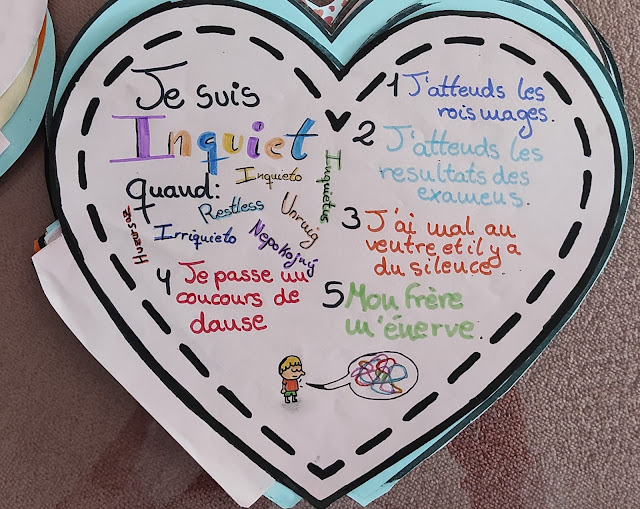 Je suis
Inquiet
quand:
Inquieto
Inquietus
Restless
Unruig
Irriquieto
Nepokojný
Huzursuz
1 J'attends les
rois mages.
2 J'attends les
resultats des
examens.
3 J'ai mal au
ventre et il y a
du silence.
4 Je passe un
concours de
danse
5 Mon frère
m'énerve.